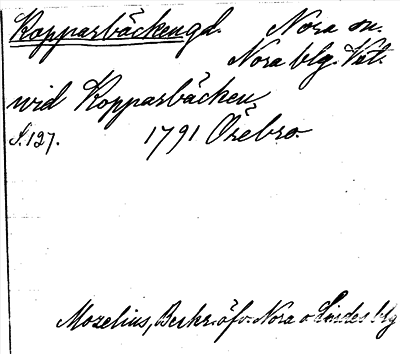 Kopparbäckengd. Nora sn.
Nora blg. Vstl.
wid Kopparbäcken
S. 127. 1791 Örebro.
Mozelius, Beskr. öfv. Nora o Lindes blg